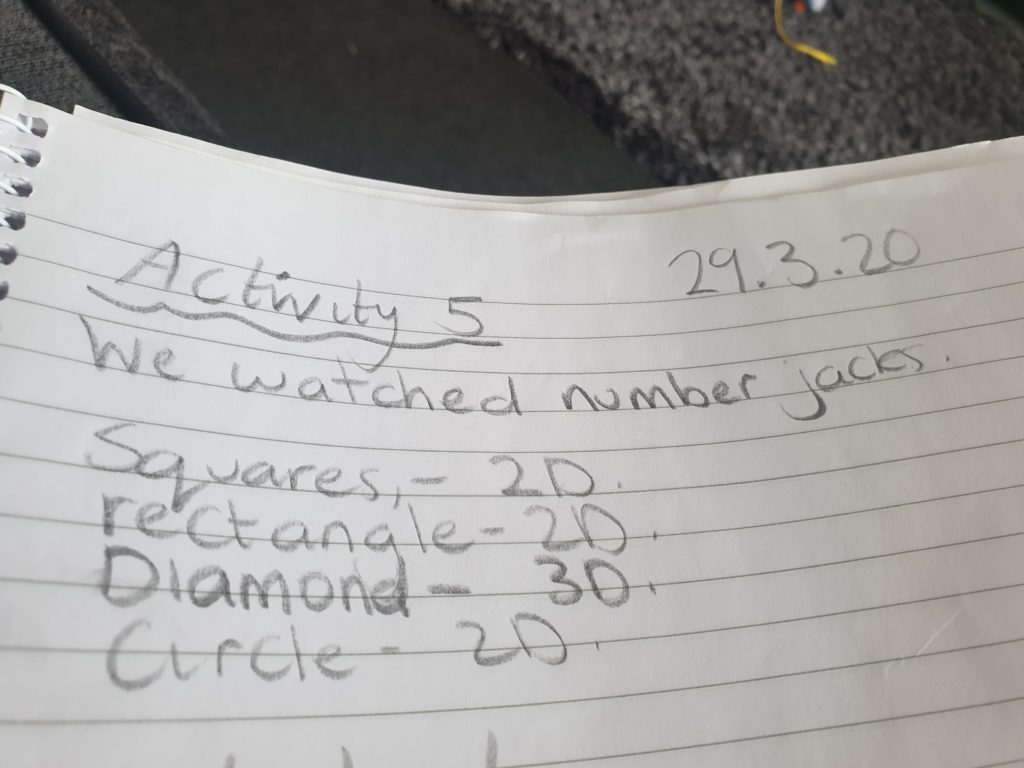 Activity 5 29.3.20
We watched number jacks.
Squares,- 2D.
rectangle- 2D.
Diamond- 3D.
Circle- 2D.